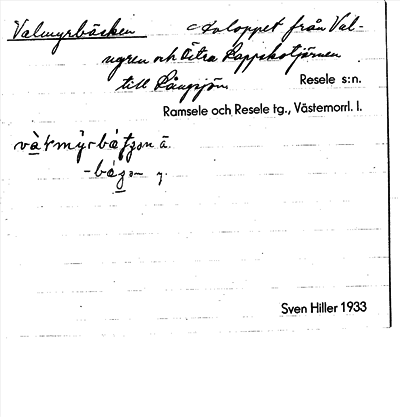 Valmyrbäcken Avloppet från Val-
myren och Östra Lappkotjärnen
till Långsjön Resele s:n.
Ramsele och Resele tg., Västernorrl. l.
ä.
y.
Sven Hiller 1933